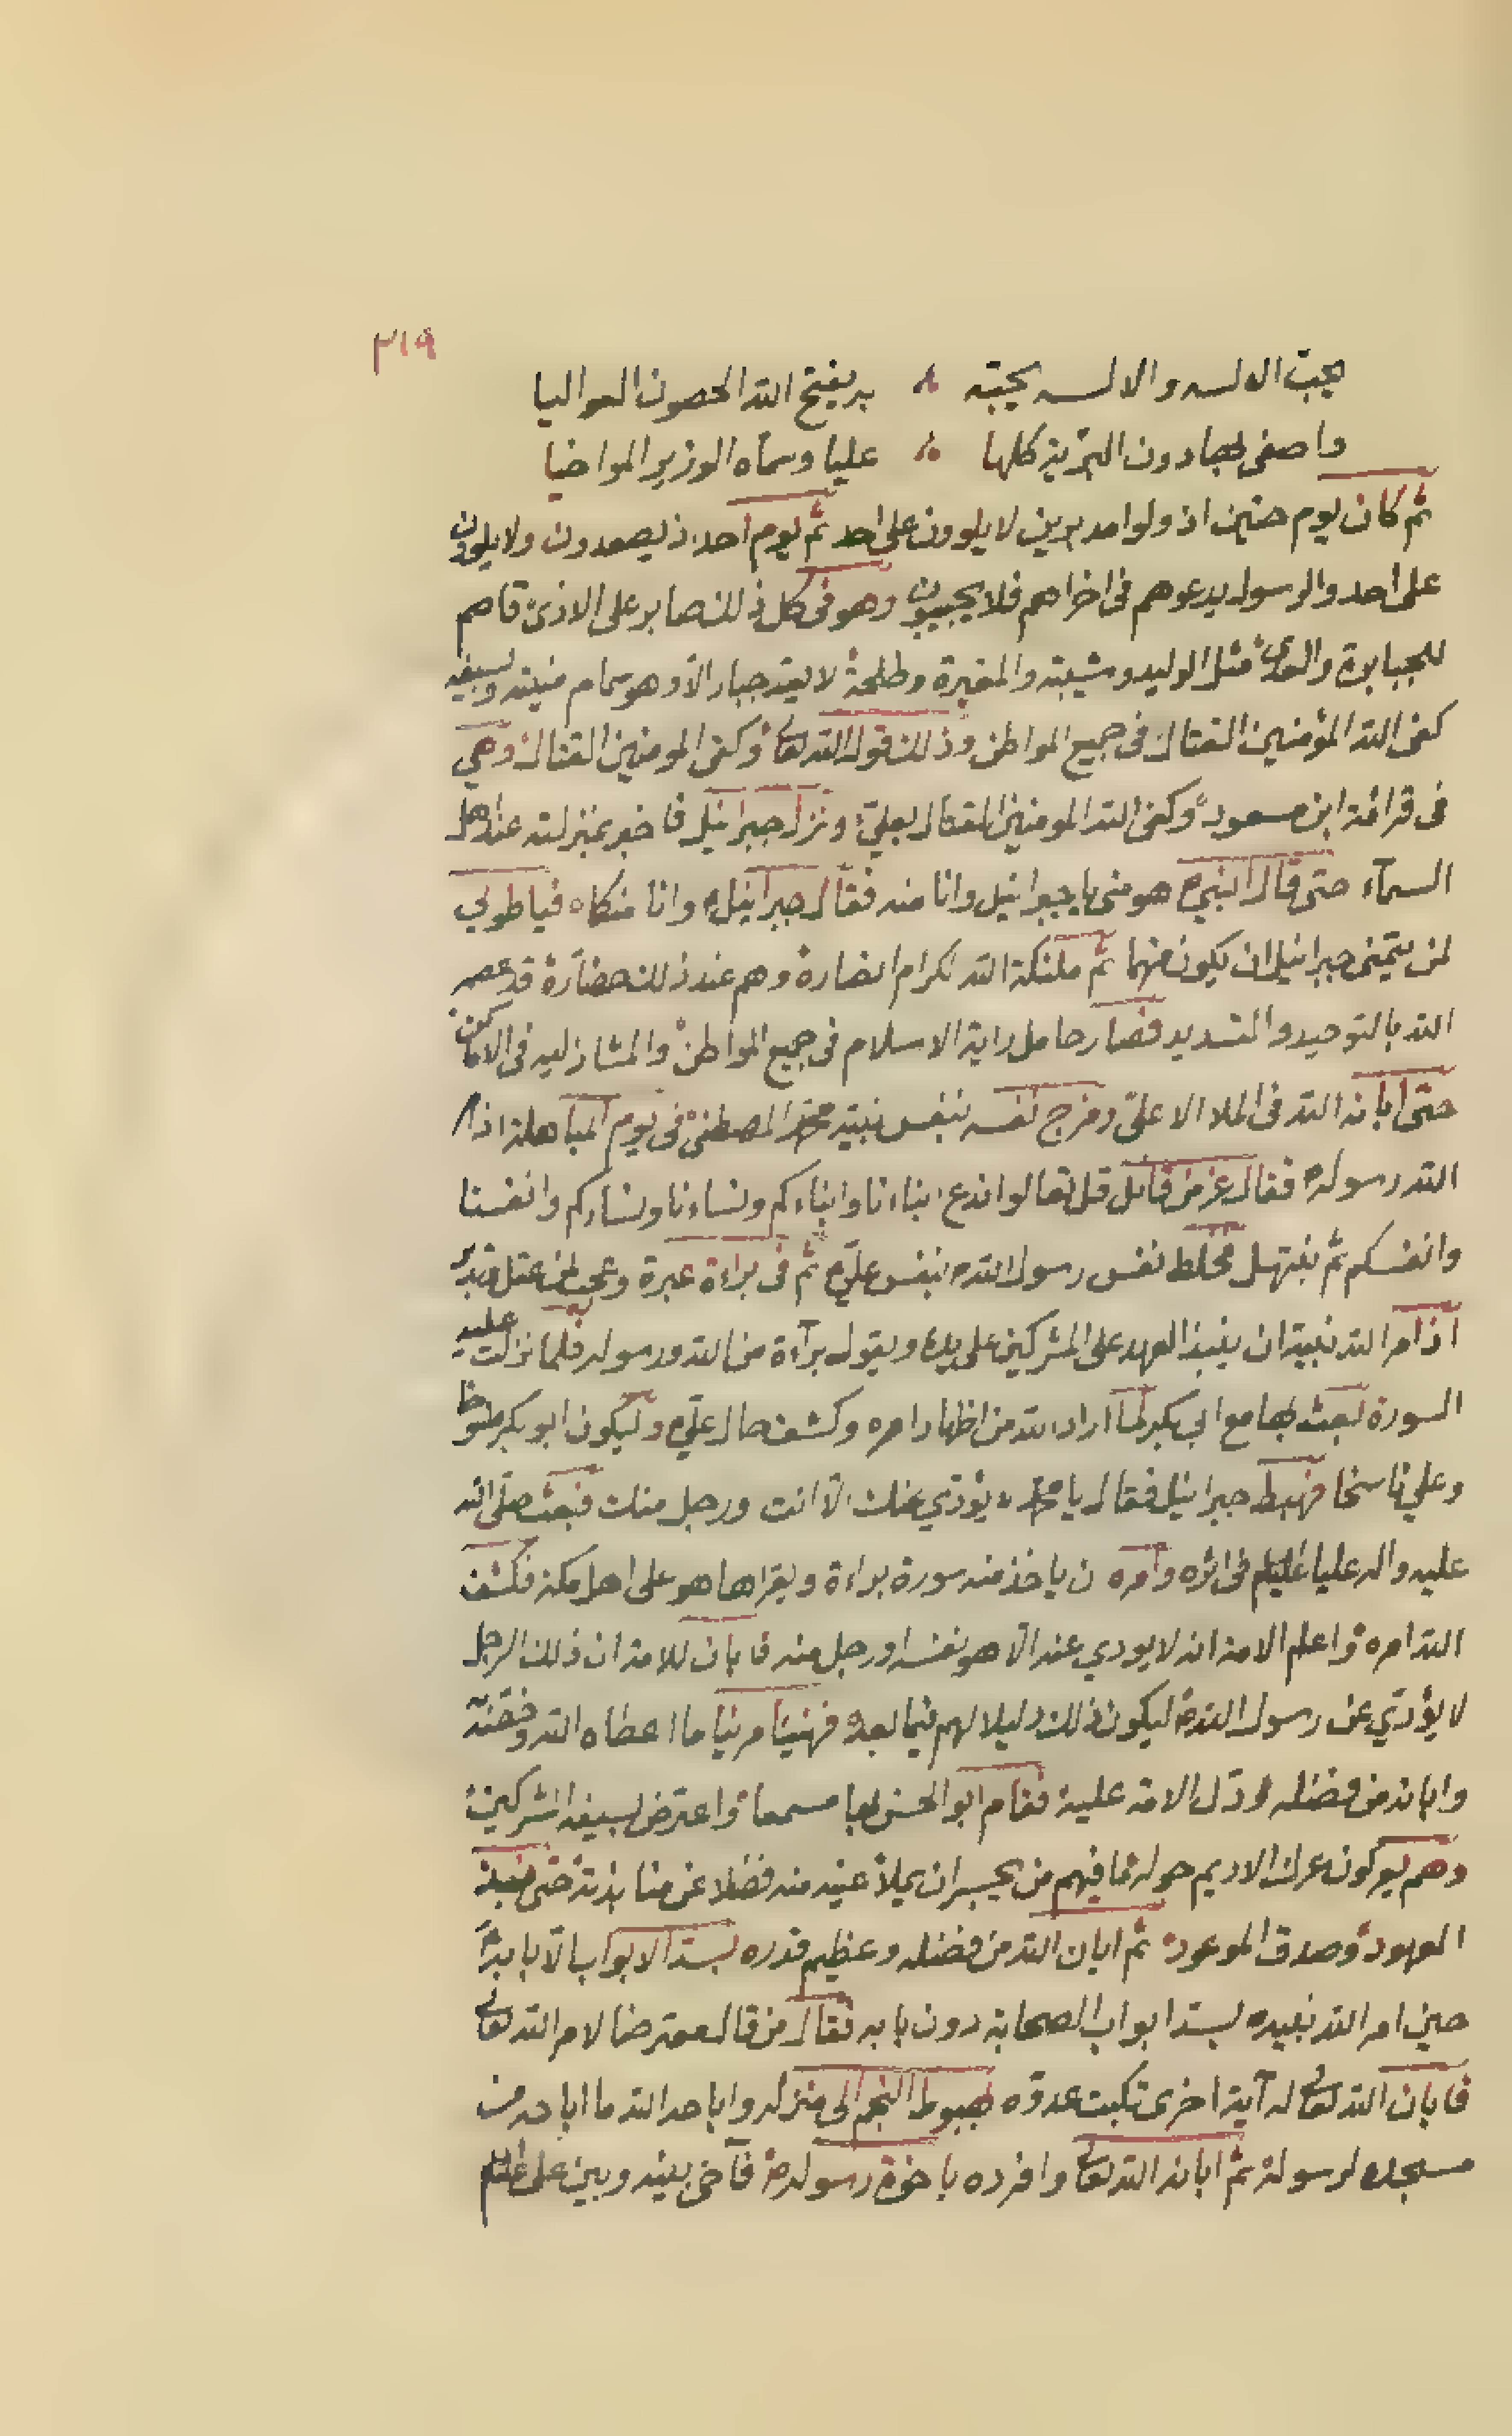 ٣١٩
يحب الاله والاله يحبه به يفتح الله الحصون العواليا
واصفى لها دون البرية كلها عليا وسماه الوزير المواخيا
ثم كان يوم حنين اذ ولوا مدبرين لا يلوون على احد ثم يوم احد اذ يصعدون ولا يلوون
على احد والرسول يدعوهم في اخراهم فلا يجيبون وهو في كل ذلك صابر على الاذى قاصم
للجبابرة مثل الوليد وشيبة والمغيرة وطلحة جبار الا وهو سمام منيته وبسيفه
كفى الله المؤمنين القتال في جميع المواطن وذلك قول الله تعا وكفى المومنين القتال وهي
في قرائة ابن مسعود وكفى الله المومنين القتال بعلي ونزل جبرائيل فاخبر بمنزلته عند اهل
السمآء حتى قال النبي هو مني يا جبرائيل وانا منه فقال جبرائيل وانا منكما فيا طوبي
لمن يتمنى جبرائيل ان يكون منهما ثم ملئكة الله لكرام انصاره وهم عند ذلك قد
الله بالتوحيد والتسديد فصار حامل راية الاسلام في جميع المواطن والمشار اليه في الاماكن
حتى ابانه الله في الملا الاعلى ومزج نفسه بنفس نبيه محمد المصطفى في يوم المباهلة اذ
الله رسوله فقال عز من قائل قل تعالوا ندع ابناءنا وابناءكم ونساءنا ونساءكم وانفسنا
وانفسكم ثم نبتهل فخلط نفس رسول الله بنفس علي ثم في براءة عبرة وعجب لمن عقل وتدبر
اذ امر الله نبيه ان ينبذ العهد على المشركين على يده ويقول برآءة من الله ورسوله فلما نزلت عليه
السورة بعث بها مع ابي بكر لما اراد الله من اظهار امره وكشف حال علي وليكون ابو بكر منسوخا
وعلي ناسخا فهبط جبرائيل فقال يا محمد لا يؤدي عنك الا انت ورجل منك فبعث صلى الله
عليه واله عليا عليلم في اثره وامره ن ياخذ منه سورة براءة ويقراها هو على اهل مكة فكشف
الله امره واعلم الامة انه لا يودي عنه الا هو نفسه او رجل منه فابان للامة ان ذلك الرجل
لا يؤدي عن رسول الله ليكون ذلك دليلا لهم فيما بعد فهنيئا مرئيا ما اعطاه الله
وابانه من فضله ودل الامة عليه فقام ابو الحسن بها مسمعا واعترض بسيفه المشركين
وهم يعركون عرك الاديم حوله فما فيهم من يجسر ان يملأ عينه منه فضلا عن منابذته حتى
العهود وصدق الموعود ثم ابان الله من فضله وعظيم قدره بسد الابواب الا بابه
حين امر الله نبيه بسد ابواب الصحابة دون بابه فقال من قال معترضا لامر الله تعا
فابان الله تعا له آية اخرى تكبت عدوه بهبوط النجم الى منزله واباحه الله ما اباحه من
مسجده لرسوله ثم ابانه الله تعا وافرده باخوة رسوله فآخى بينه وبين على عليلم